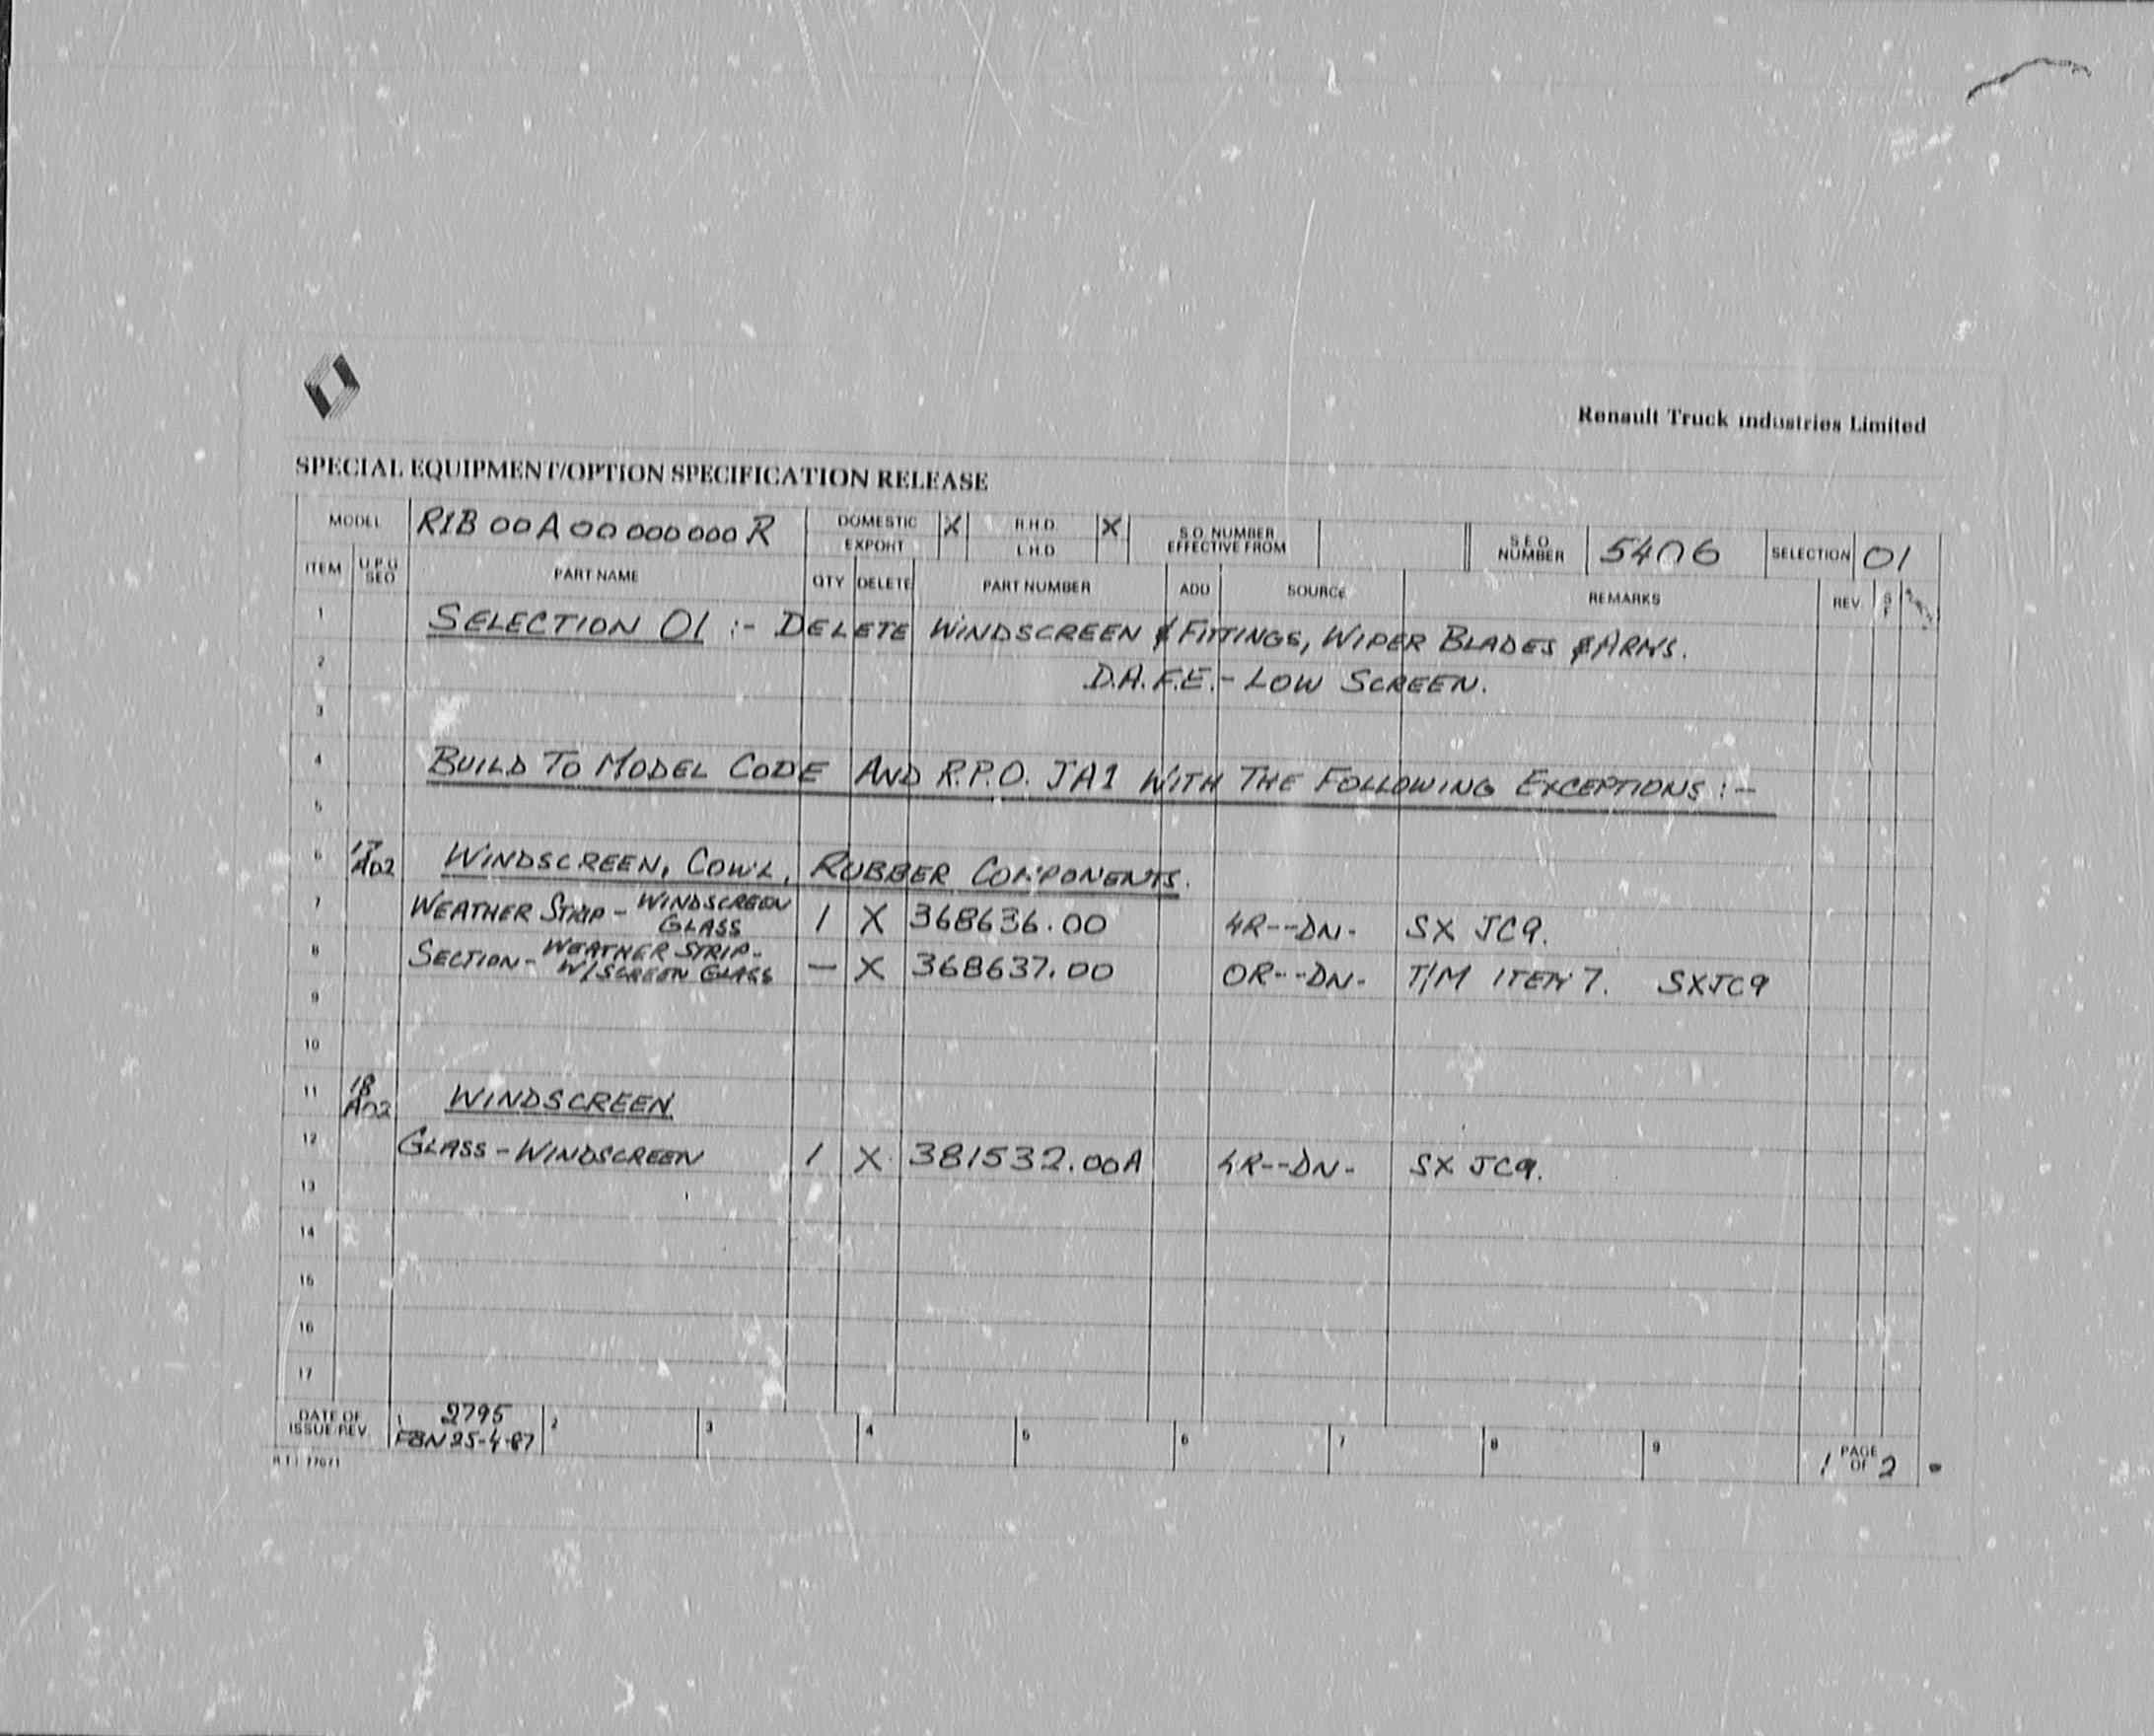 Renault Truck Industries Limited
SPECIAL EQUIPMENT/OPTION SPECIFICATION RELEASE
MODEL R1B 00A 00 000 000 R DOMESTIC X R.H.D. X S.O. NUMBER EFFECTIVE FROM S.E.O. NUMBER 5406 SELECTION 01
EXPORT L.H.D.
ITEM U.P.G SEO PART NAME QTY DELETE PART NUMBER ADD SOURCE REMARKS REV
1 SELECTION 01 :- DELETE WINDSCREEN & FITTINGS, WIPER BLADES & ARMS.
2 D.A.F.E. - LOW SCREEN.
3
4 BUILD TO MODEL CODE AND R.P.O. JA1 WITH THE FOLLOWING EXCEPTIONS :-
5
6 17 A02 WINDSCREEN, COWL, RUBBER COMPONENTS.
7 WEATHER STRIP - WINDSCREEN GLASS 1 X 368636.00 4R--DN- SX JC9.
8 SECTION - WEATHER STRIP - W/SCREEN GLASS — X 368637.00 OR--DN- T/M ITEM 7. SXJC9
9
10
11 18 A02 WINDSCREEN
12 GLASS - WINDSCREEN 1 X 381532.00A 4R--DN- SX JC9.
13
14
15
16
17
DATE OF ISSUE/REV 1 2795 2 3 4 5 6 7 8 9 1 PAGE OF 2
25-4-87